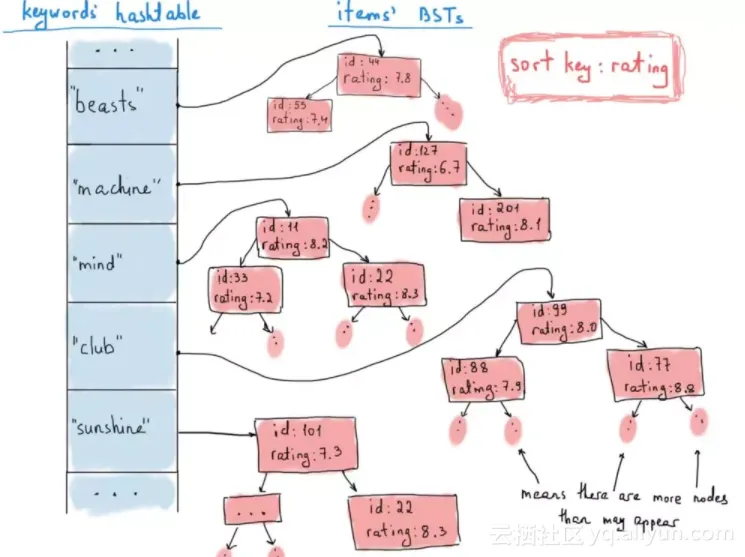 keywords' hashtable
items' BSTs
sort key: rating
...
"beasts"
"machine"
"mind"
"club"
"sunshine"
...
id: 44
rating: 7.8
id: 55
rating: 7.4
id: 127
rating: 6.7
id: 201
rating: 8.1
id: 11
rating: 8.2
id: 33
rating: 7.2
id: 22
rating: 8.3
id: 99
rating: 8.0
id: 88
rating: 7.9
id: 77
rating: 8.8
id: 101
rating: 7.3
...
id: 22
rating: 8.3
means there are more nodes
than may appear
云栖社区 yq.aliyun.com